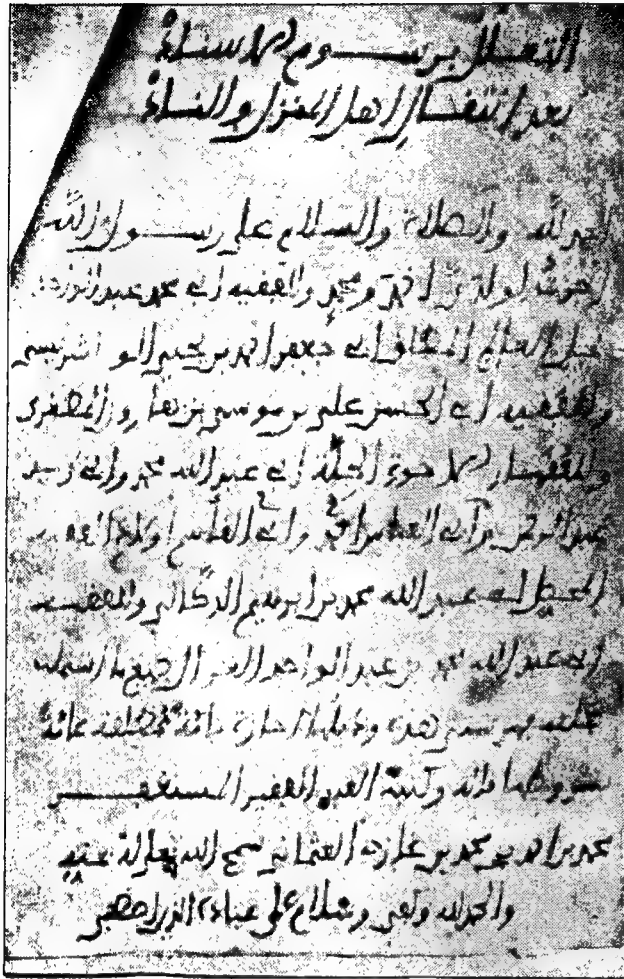 التعلل برسوم الاسناد
بعد انتقال اهل المنزل والناد
الحمد لله والصلاة والسلام على رسول الله
اولادي احمد ومحمد والفقيه ابي محمد عبد
ابي جعفر احمد بن يحيى الونشريسي
والفقيه ابي الحسن علي بن موسى بن هارون المطغري
والفقهاء الاخوة الجلة ابي عبد الله محمد وابي زيد
عبد الرحمن وابي العباس وابي القاسم اولاد الفقيه
ابي عبد الله محمد بن ابراهيم الدكالي والفقيه
ابي عبد الله محمد بن عبد الواحد جميع ما اشتملت
عليه فهرستي هذه اجازة تامة مطلقة عامة
بشروطها وكتبه العبد الفقير المستغفر
محمد بن احمد بن محمد بن غازي العثماني سمح الله تعالى له بمنه
والحمد لله وكفى وسلام على عباده الذين اصطفى